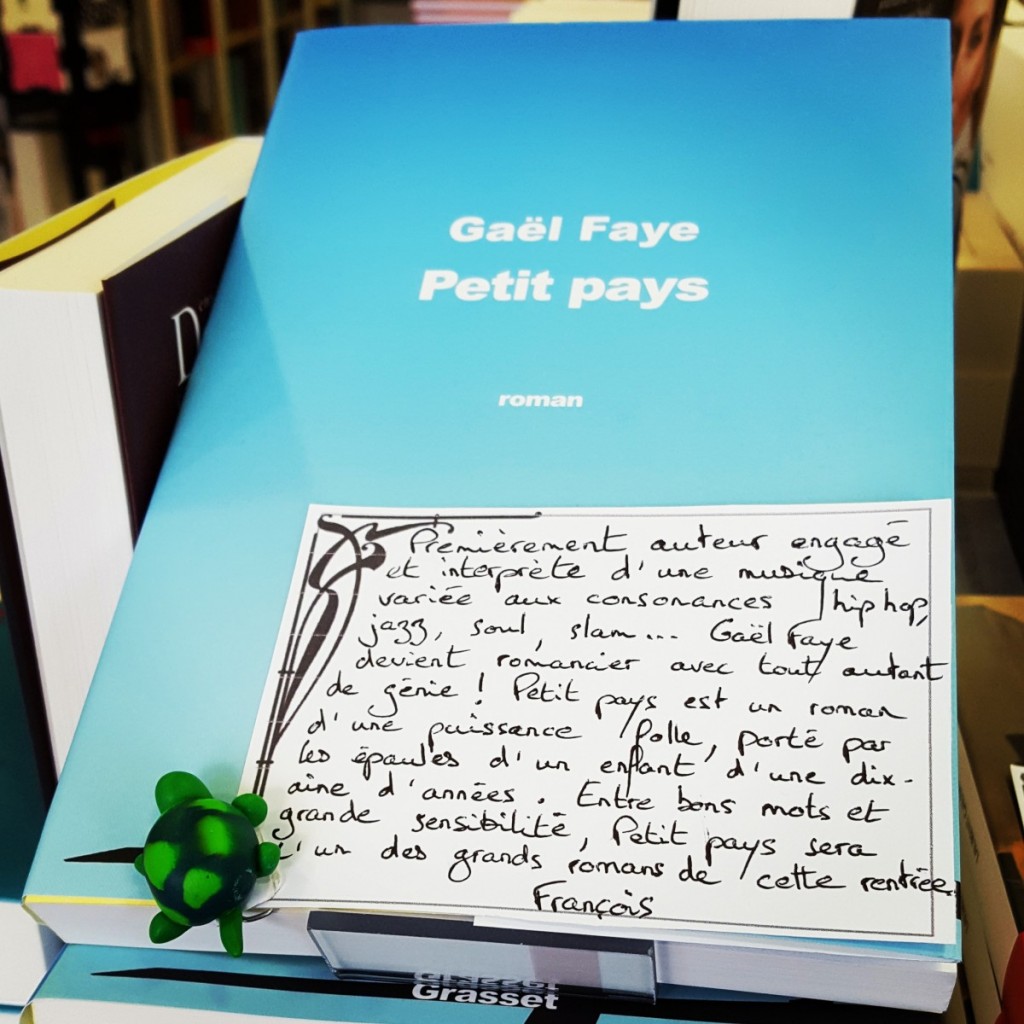 Gaël Faye
Petit pays
roman
D
Premièrement auteur engagé
et interprète d'une musique
variée aux consonances hip hop,
jazz, soul, slam... Gaël Faye
devient romancier avec tout autant
de génie ! Petit pays est un roman
d'une puissance folle, porté par
les épaules d'un enfant d'une dix-
aine d'années. Entre bons mots et
grande sensibilité, Petit pays sera
l'un des grands romans de cette rentrée.
François
Grasset